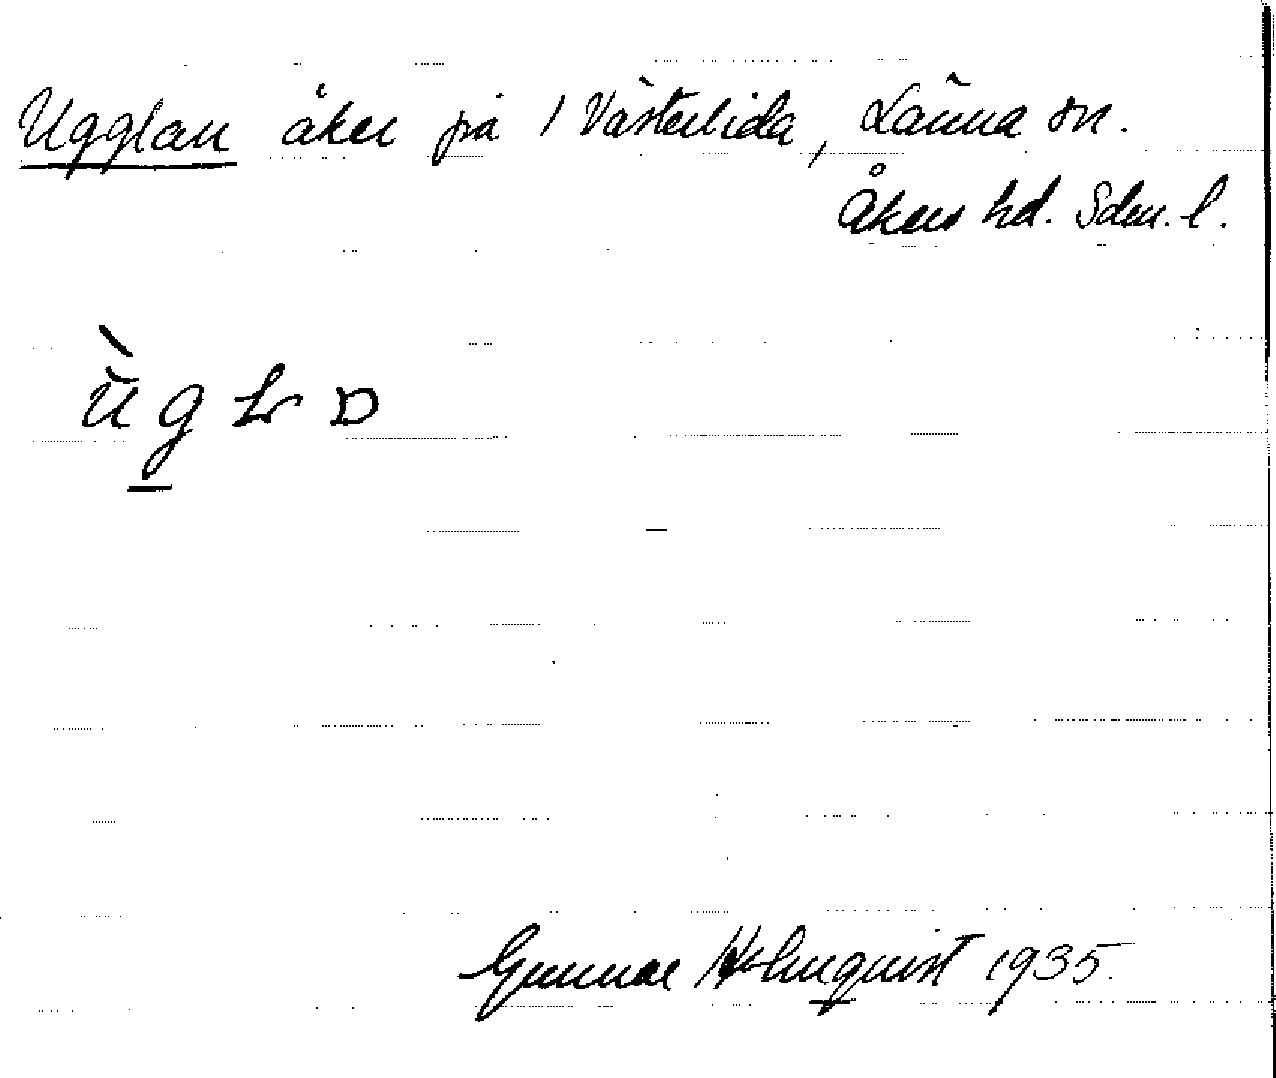 Ugglan åker på 1 Västerlida, Länna sn.
Åkers hd. Sdm. l.
Gunnar Holmquist 1935.